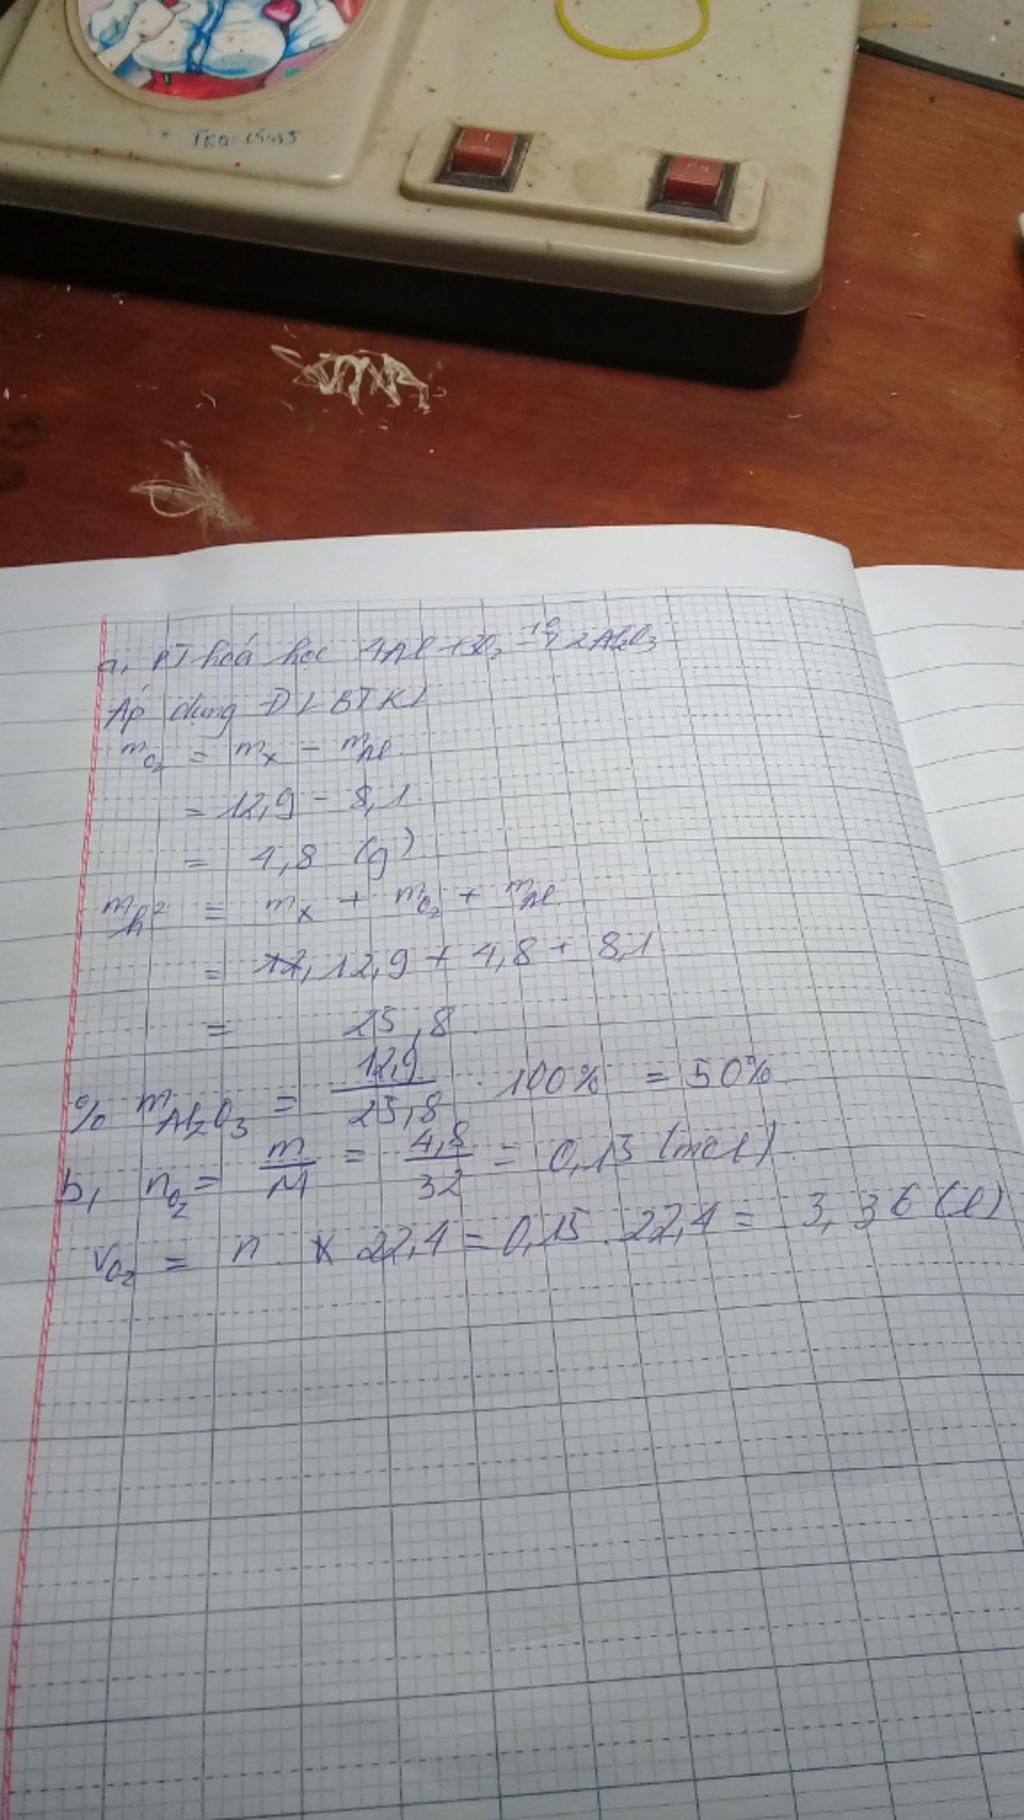 a, PT hoá học 4Al + 3O₂ -tº→ 2Al₂O₃
Áp dụng DLBTKL
m_O₂ = m_x - m_Al
= 12,9 - 8,1
= 4,8 (g)
= m_x + m_O₂ + m_Al
= 12,9 + 4,8 + 8,1
= 25,8
% m_Al₂O₃ = 12,9/25,8 . 100% = 50%
b, n_O₂ = m/M = 4,8/32 = 0,15 (mol)
V_O₂ = n x 22,4 = 0,15 . 22,4 = 3,36 (l)